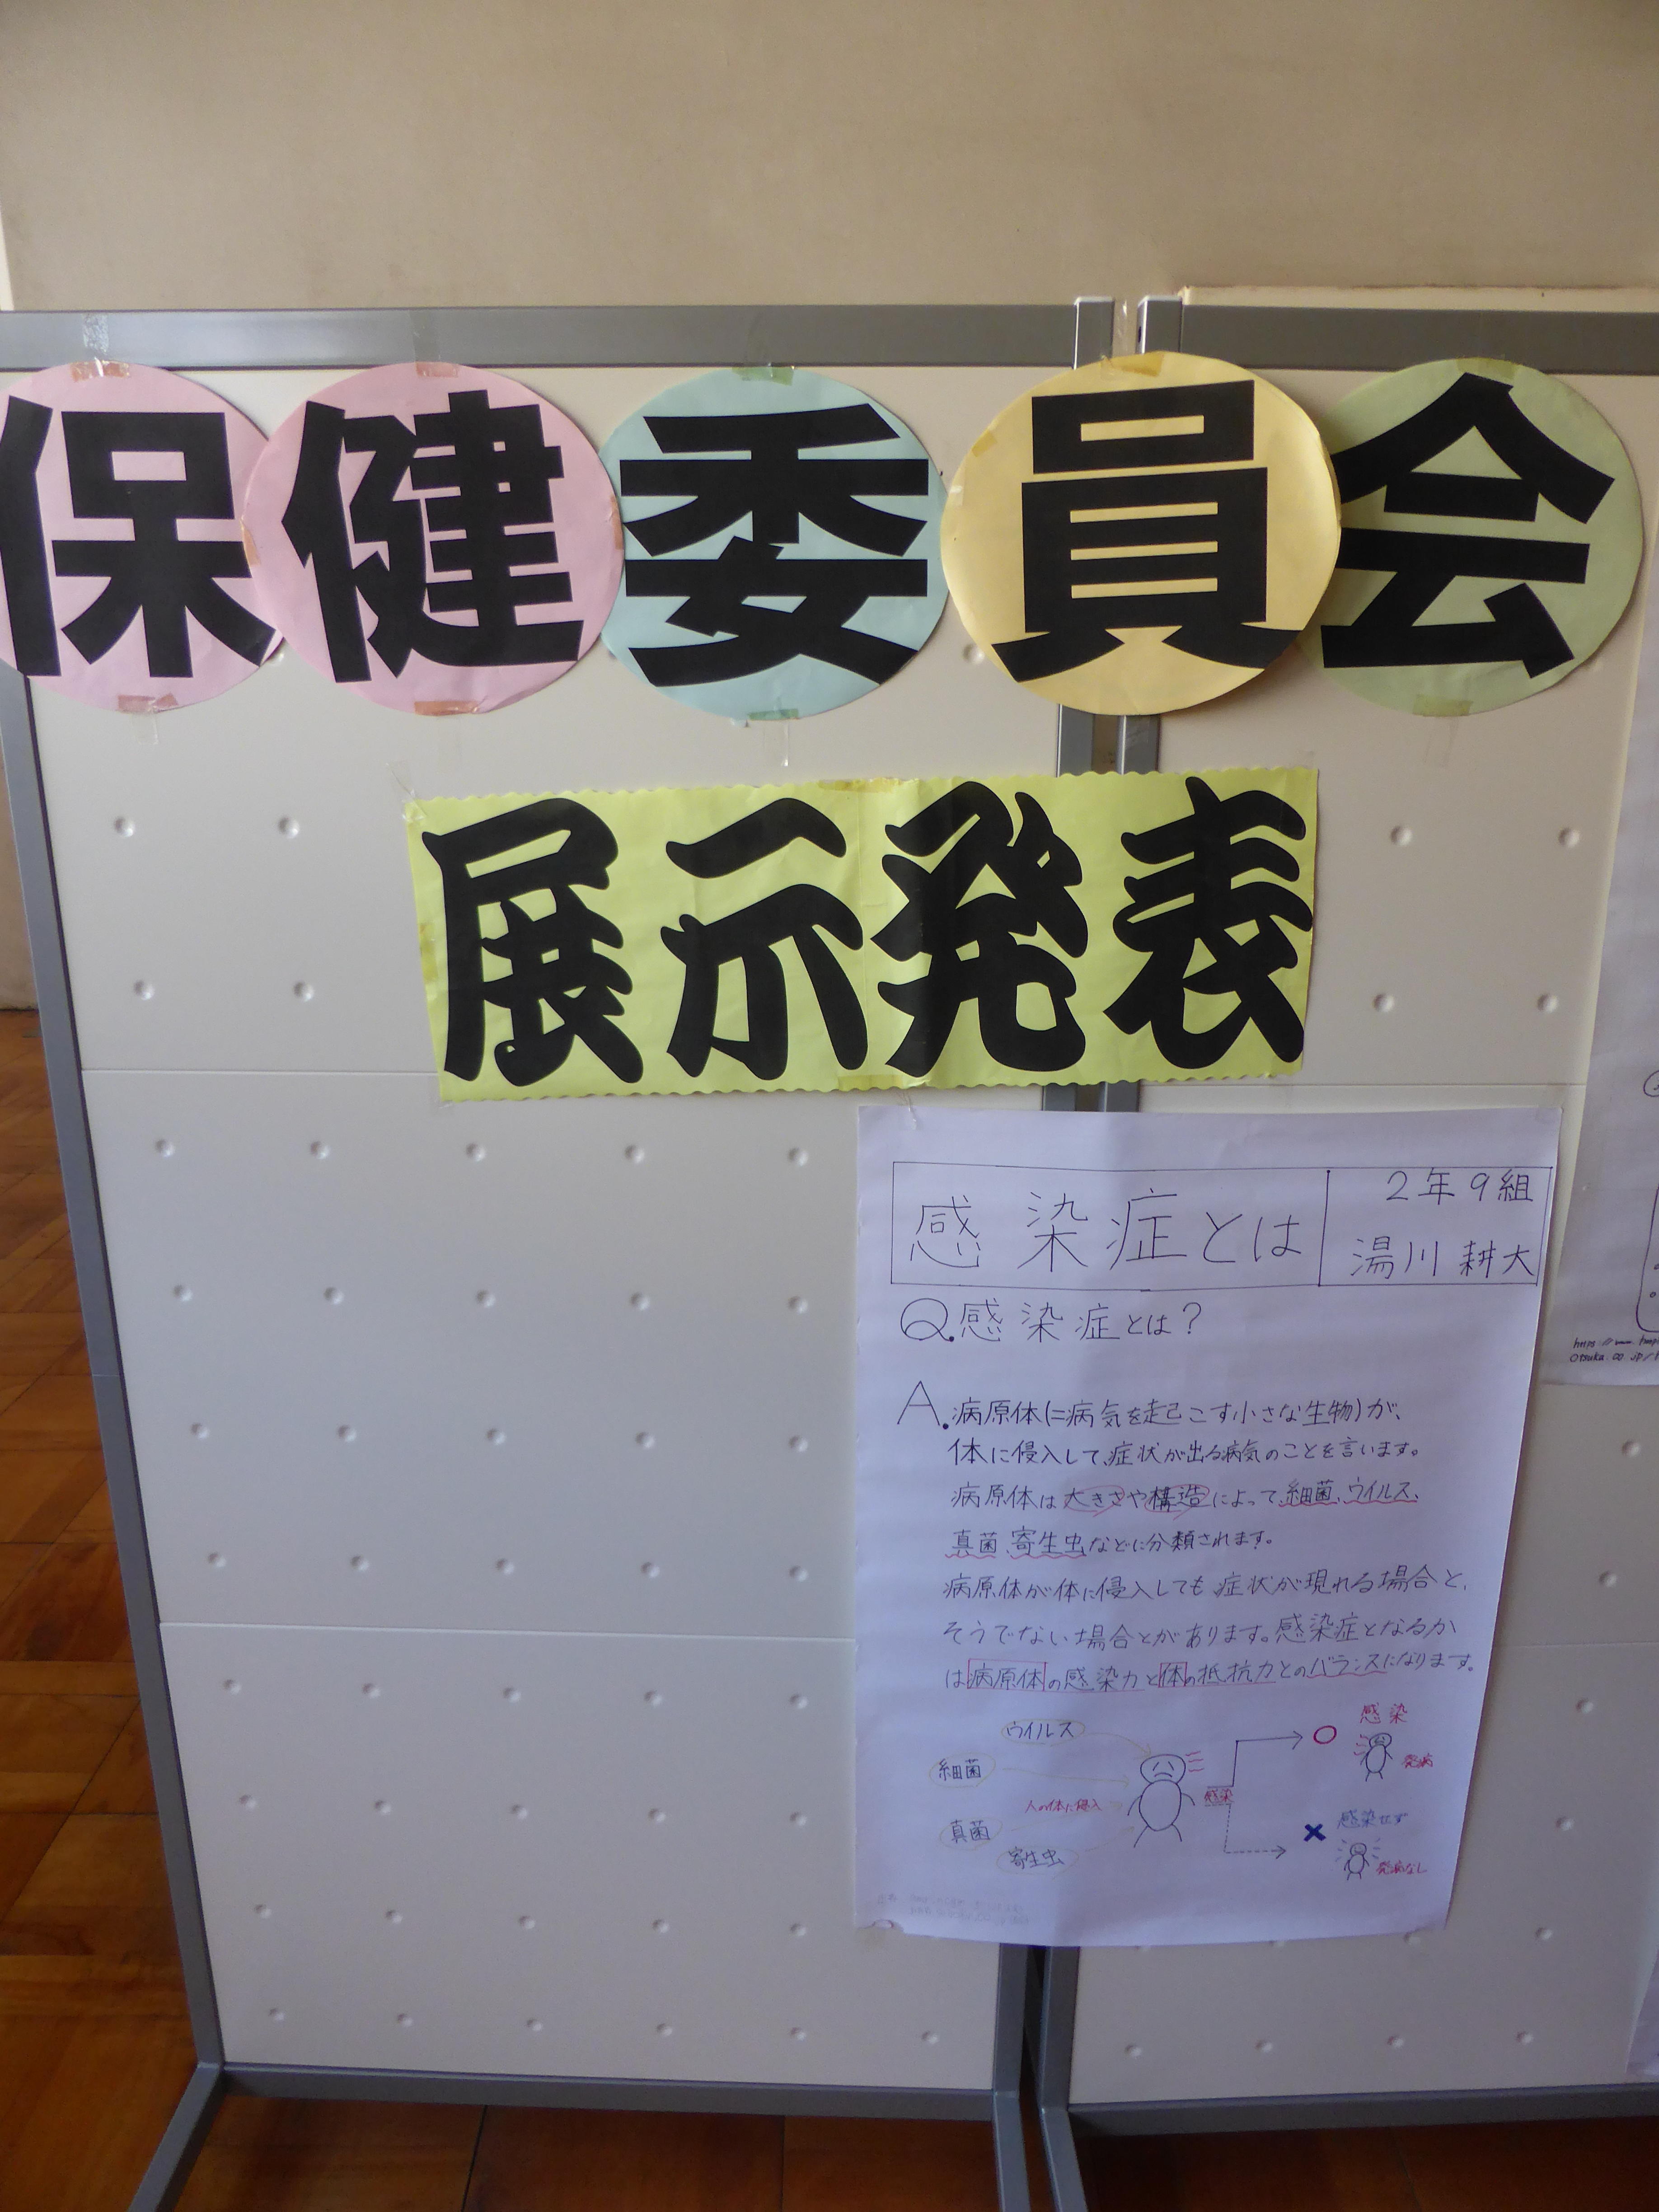 保健委員会
展示発表
感染症とは
2年9組
湯川 耕大
Q.感染症とは?
A.病原体(=病気を起こす小さな生物)が、
体に侵入して、症状が出る病気のことを言います。
病原体は大きさや構造によって、細菌、ウイルス、
真菌、寄生虫などに分類されます。
病原体が体に侵入しても、症状が現れる場合と、
そうでない場合とがあります。感染症となるか
は病原体の感染力と体の抵抗力とのバランスになります。
ウイルス
細菌
人の体に侵入
真菌
寄生虫
感染
感染
発病
感染せず
発病なし